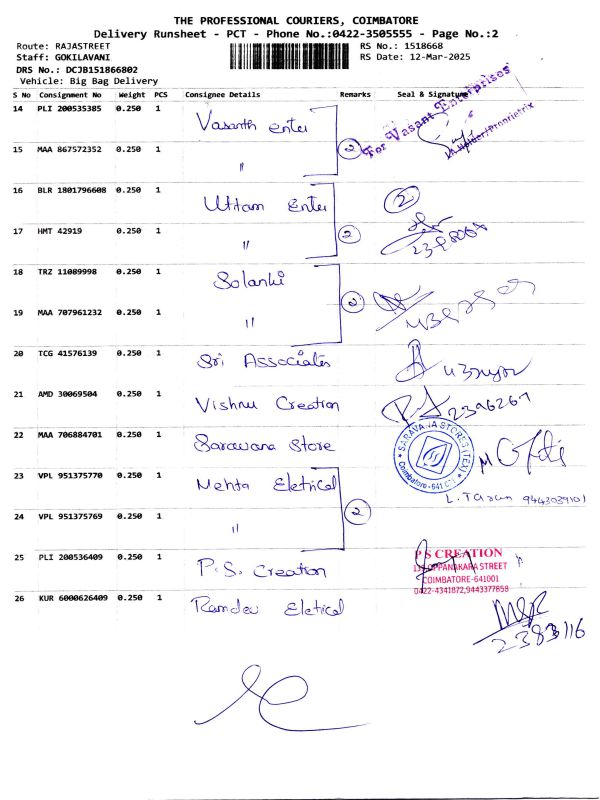 THE PROFESSIONAL COURIERS, COIMBATORE
Delivery Runsheet - PCT - Phone No.:0422-3505555 - Page No.:2
Route: RAJASTREET RS No.: 1518668
Staff: GOKILAVANI RS Date: 12-Mar-2025
DRS No.: DCJB151866802
Vehicle: Big Bag Delivery
S No Consignment No Weight PCS Consignee Details Remarks Seal & Signature
14 PLI 200535385 0.250 1 Vasanth enter
For Vasant Enterprises
/Proprietrix
15 MAA 867572352 0.250 1 " 2
16 BLR 1801796608 0.250 1 Uttam Enter 2
17 HMT 42919 0.250 1 " 2
18 TRZ 11089998 0.250 1 Solanki 2
19 MAA 707961232 0.250 1 "
20 TCG 41576139 0.250 1 Sri Associates
21 AMD 30069504 0.250 1 Vishnu Creation 2396267
22 MAA 706884701 0.250 1 Saravana Store
SARAVANA STORES (TEX)
Coimbatore-641 001
23 VPL 951375770 0.250 1 Mehta Eletrical
L. Tarun 9443039101
24 VPL 951375769 0.250 1 " 2
25 PLI 200536409 0.250 1 P.S. Creation
P S CREATION
OPPANAKARA STREET
COIMBATORE-641001
0422-4341872,9443377858
26 KUR 6000626409 0.250 1 Ramdev Eletrical
2383116